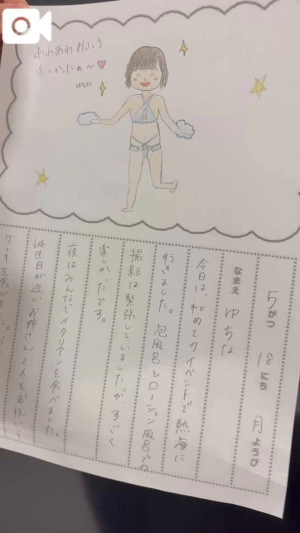 あわあわおふろ
たのしかったぁ〜♡
5がつ 18にち 月ようび
なまえ ゆちな
今日は、初めてのイベントで熱海に
行きました。泡風呂とローション風呂での
撮影は緊張していましたが すごく
楽しかったです。
夜はみんなでイタリアンを食べました。
誕生日が近いお姉さん2人をお祝いして
ケーキを食べ